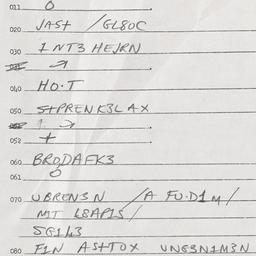 011 O
020 JAST /GL80C
030 1NT3 HEJRN
040 HO·T
050 S+PRENK3LAX
052 +
060 BRODAFK3
061
070 UBREN3N /A FU·D1M/
MT L8AP1S/
SG1L3
080 F1N AS+TOX UNGSN1M3N